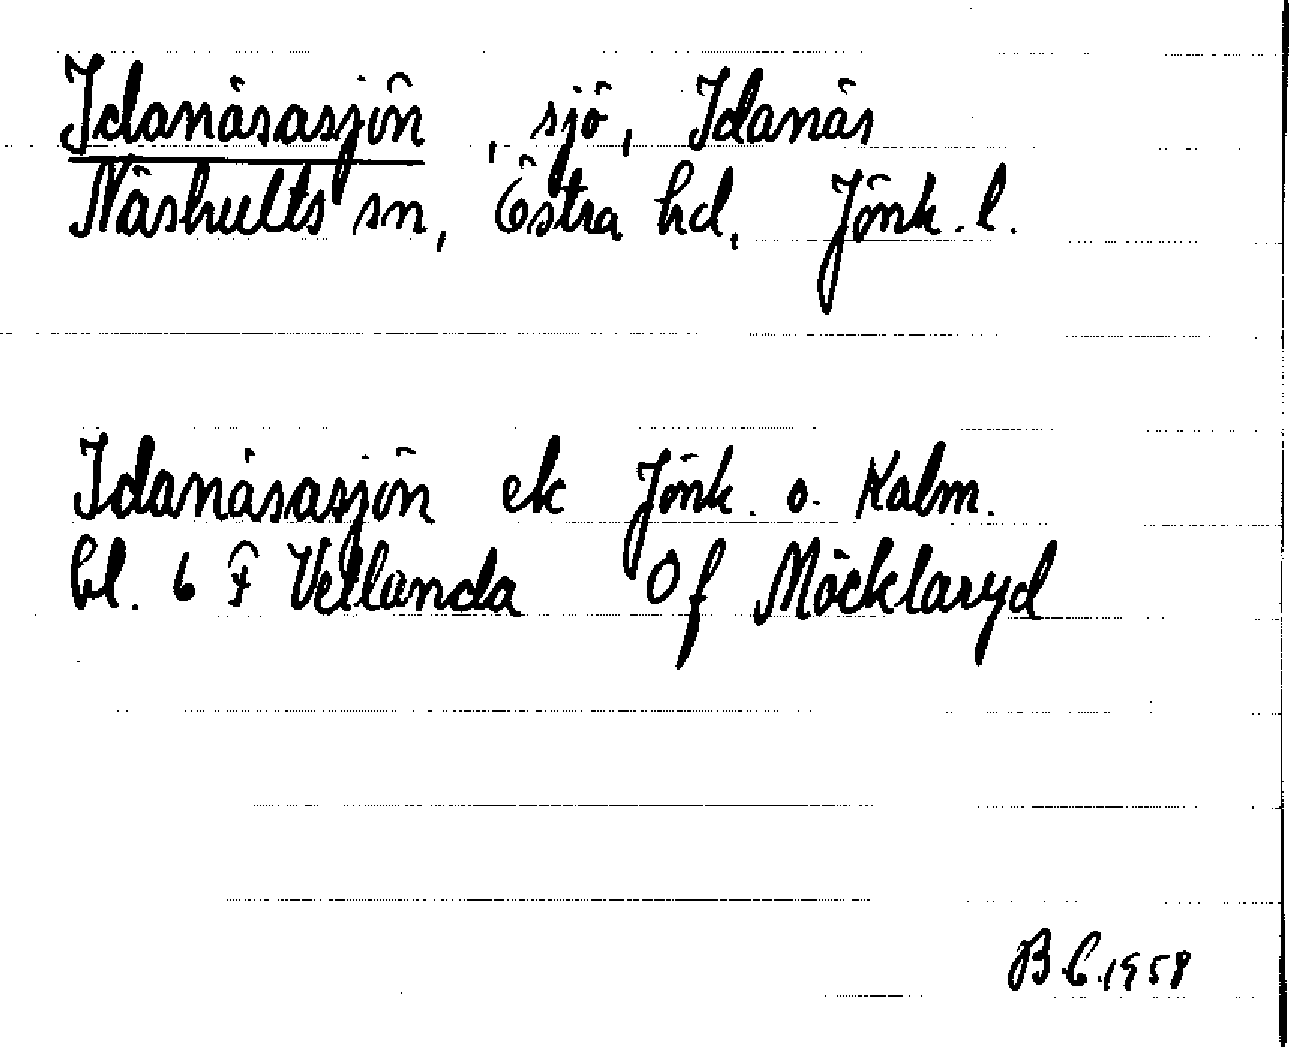 Idanäsasjön, sjö, Idanäs
Näshults sn, Östra hd, Jönk. l.
Idanäsasjön ek Jönk. o. Kalm.
bl. 6 F Vetlanda Of Möcklaryd
B C. 1958